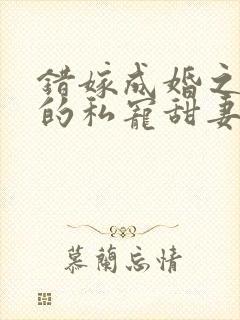 错嫁成婚之
的私宠甜妻
慕蘭忘情